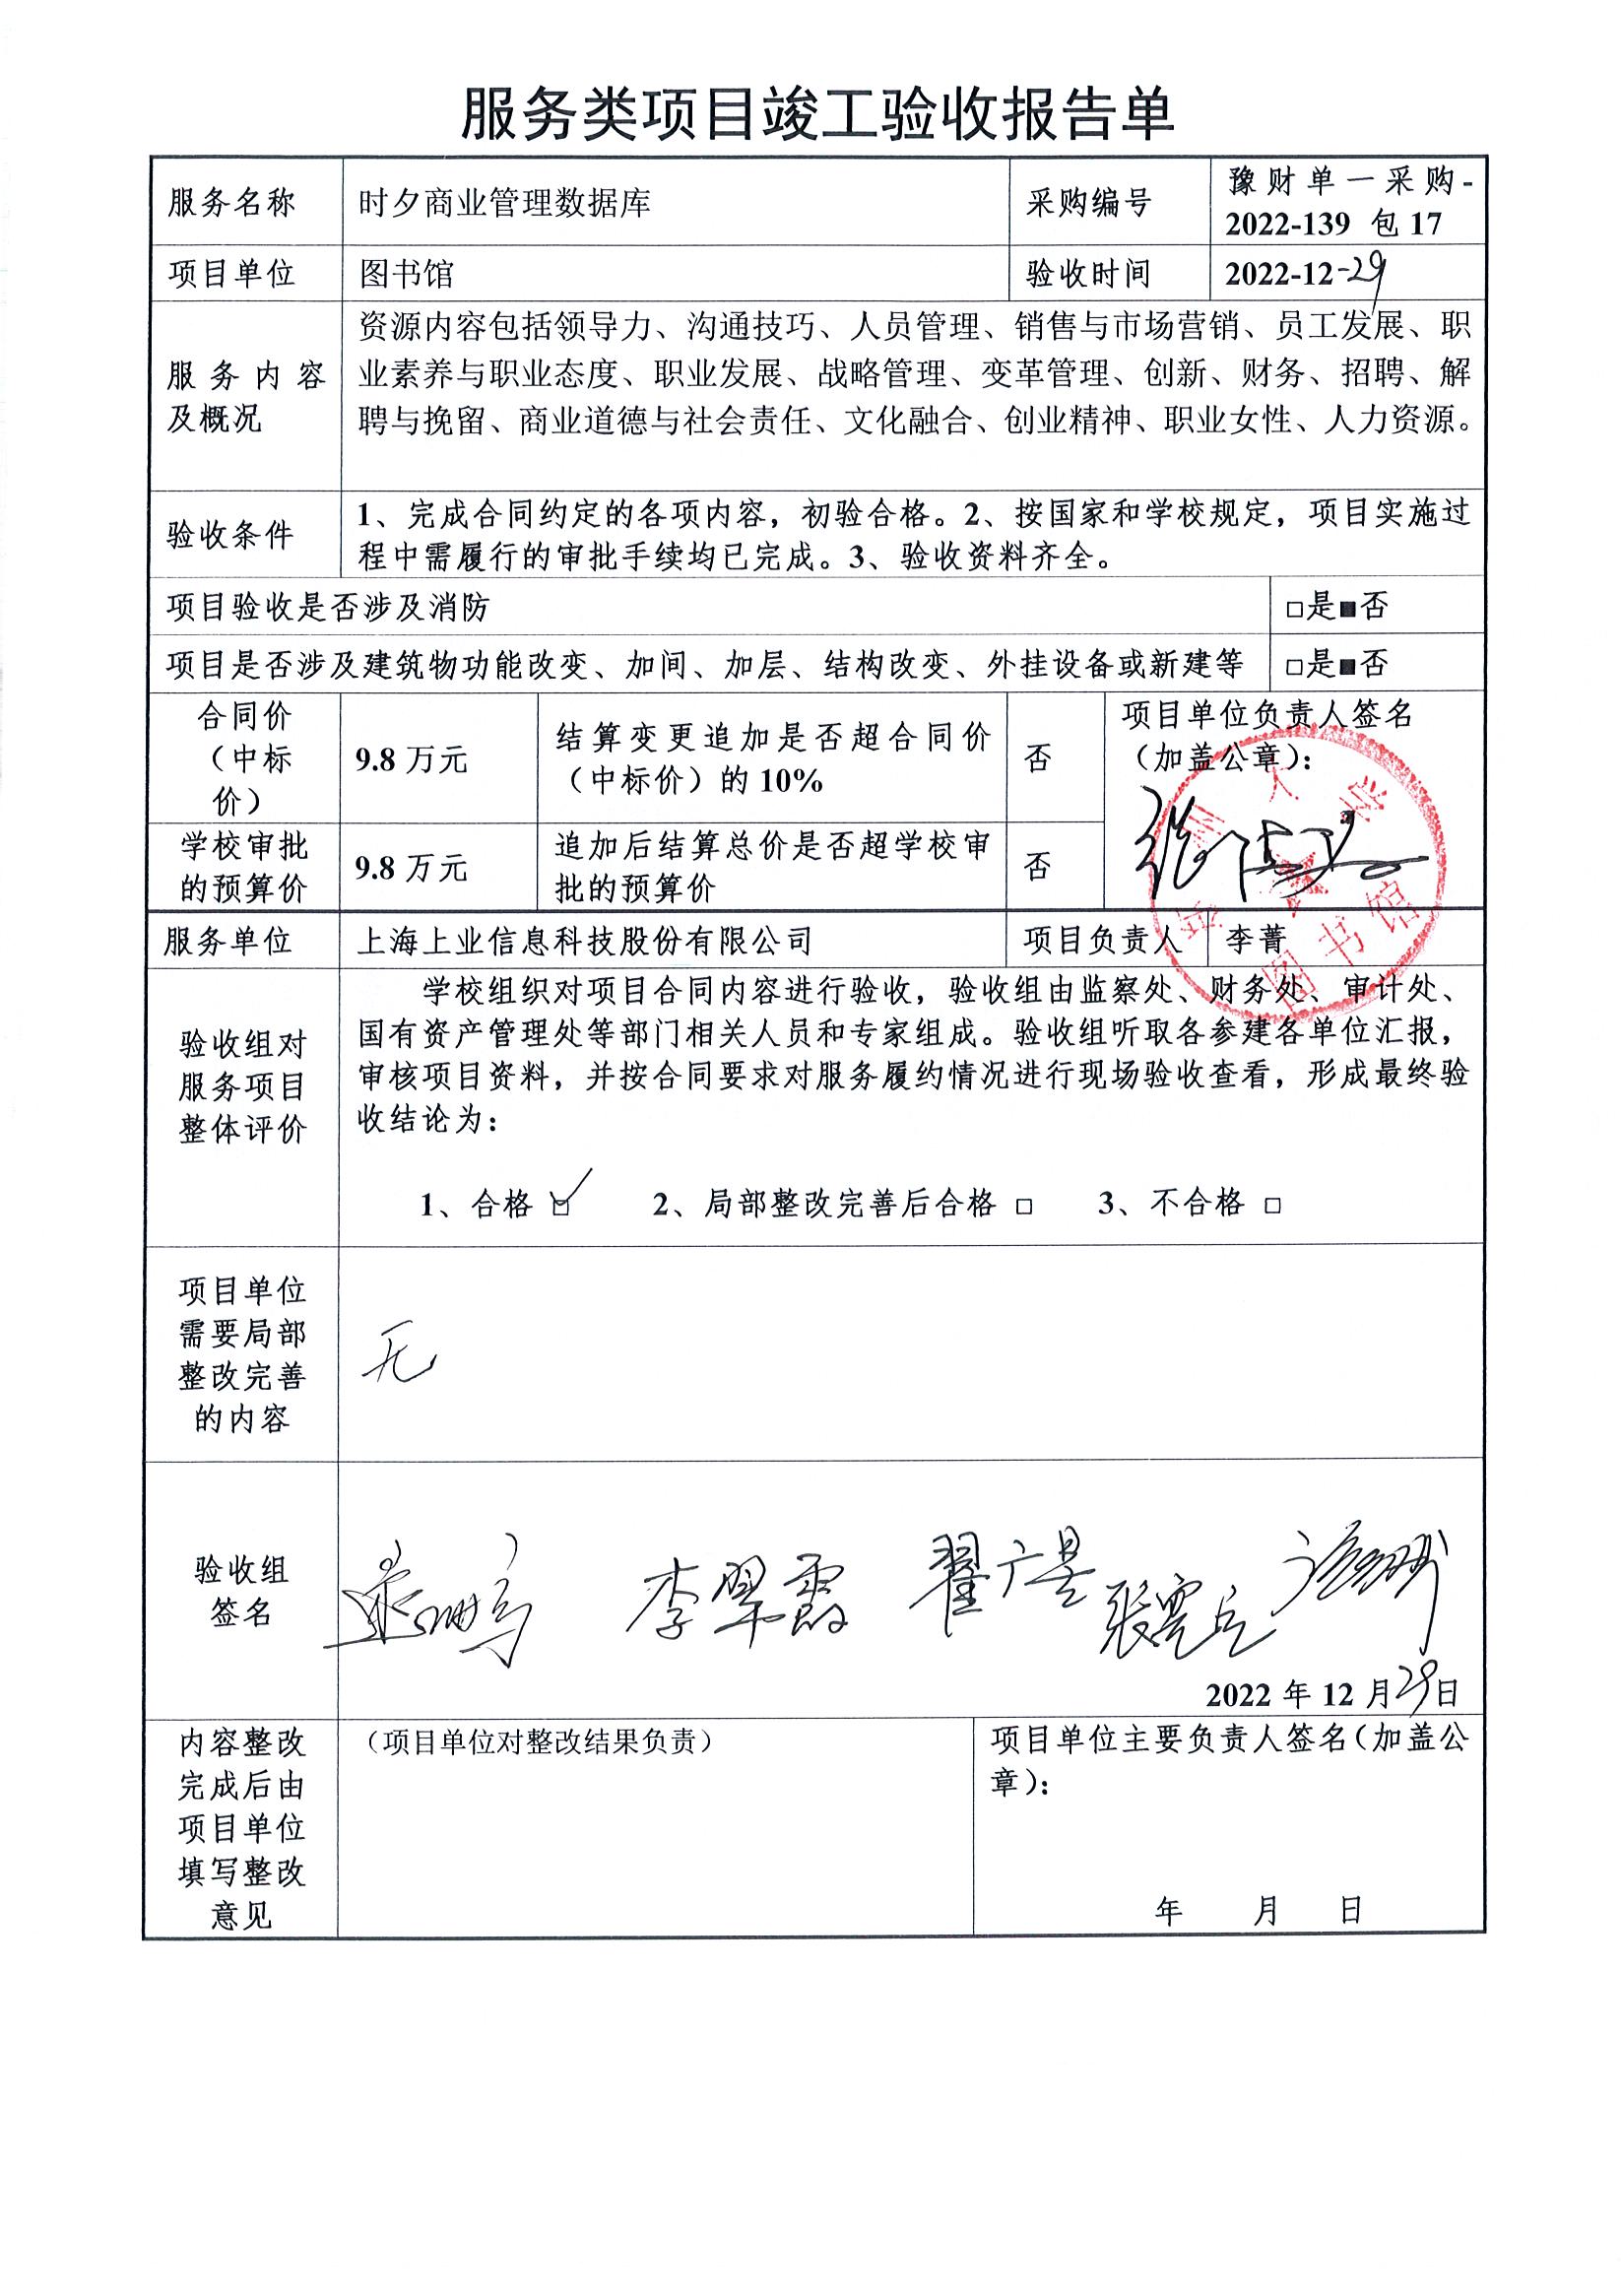 服务类项目竣工验收报告单
服务名称 时夕商业管理数据库 采购编号 豫财单一采购-
2022-139 包17
项目单位 图书馆 验收时间 2022-12-29
服务内容
及概况
资源内容包括领导力、沟通技巧、人员管理、销售与市场营销、员工发展、职
业素养与职业态度、职业发展、战略管理、变革管理、创新、财务、招聘、解
聘与挽留、商业道德与社会责任、文化融合、创业精神、职业女性、人力资源。
验收条件
1、完成合同约定的各项内容，初验合格。2、按国家和学校规定，项目实施过
程中需履行的审批手续均已完成。3、验收资料齐全。
项目验收是否涉及消防 □是■否
项目是否涉及建筑物功能改变、加间、加层、结构改变、外挂设备或新建等 □是■否
合同价
（中标
价）
9.8 万元
结算变更追加是否超合同价
（中标价）的 10%
否
项目单位负责人签名
（加盖公章）：
学校审批
的预算价
9.8 万元
追加后结算总价是否超学校审
批的预算价
否
图书馆
服务单位 上海上业信息科技股份有限公司 项目负责人 李菁
验收组对
服务项目
整体评价
学校组织对项目合同内容进行验收，验收组由监察处、财务处、审计处、
国有资产管理处等部门相关人员和专家组成。验收组听取各参建各单位汇报，
审核项目资料，并按合同要求对服务履约情况进行现场验收查看，形成最终验
收结论为：
1、合格 ☑ 2、局部整改完善后合格 □ 3、不合格 □
项目单位
需要局部
整改完善
的内容
无
验收组
签名
李翠霞 翟广昊
2022 年 12 月 29 日
内容整改
完成后由
项目单位
填写整改
意见
（项目单位对整改结果负责）
项目单位主要负责人签名（加盖公
章）：
年 月 日